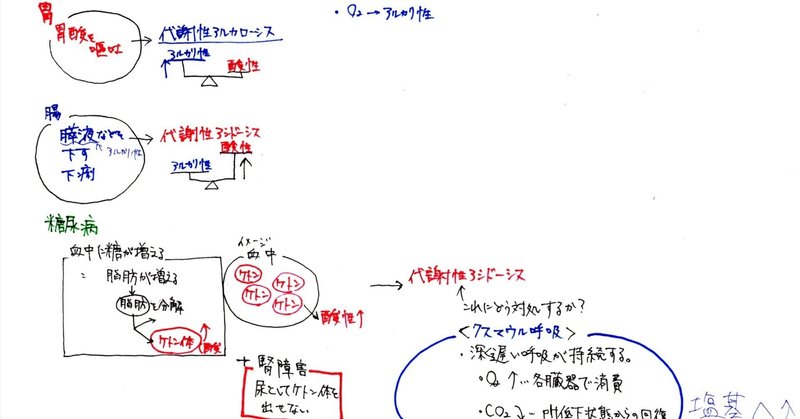 胃
胃酸を
嘔吐
代謝性アルカローシス
アルカリ性
酸性
・O₂→アルカリ性
腸
膵液などを
アルカリ性
下す
下痢
代謝性アシドーシス
アルカリ性
酸性
糖尿病
血中に糖が増える
= 脂肪が増える
脂肪を分解
ケトン体
酸性
イメージ
血中
ケトン
ケトン
ケトン
ケトン
酸性↑
代謝性アシドーシス
これにどう対処するか?
<クスマウル呼吸>
・深く遅い呼吸が持続する。
・O₂↑…各臓器で消費
・CO₂↓…pH低下状態からの回復
+ 腎障害
尿としてケトン体を
出せない
塩基